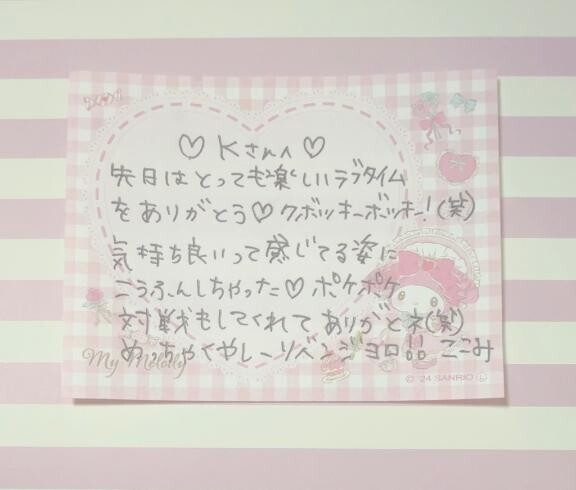 ♡ Kさんへ ♡
先日はとっても楽しいラブタイム
をありがとう♡クボッキーボッキー!(笑)
気持ち良いって感じてる姿に
こうふんしちゃった♡ポケポケ
対戦もしてくれてありがとネ(笑)
めっちゃくやしーリベンジヨロ!! ここみ
My Melody
© '24 SANRIO Ⓛ